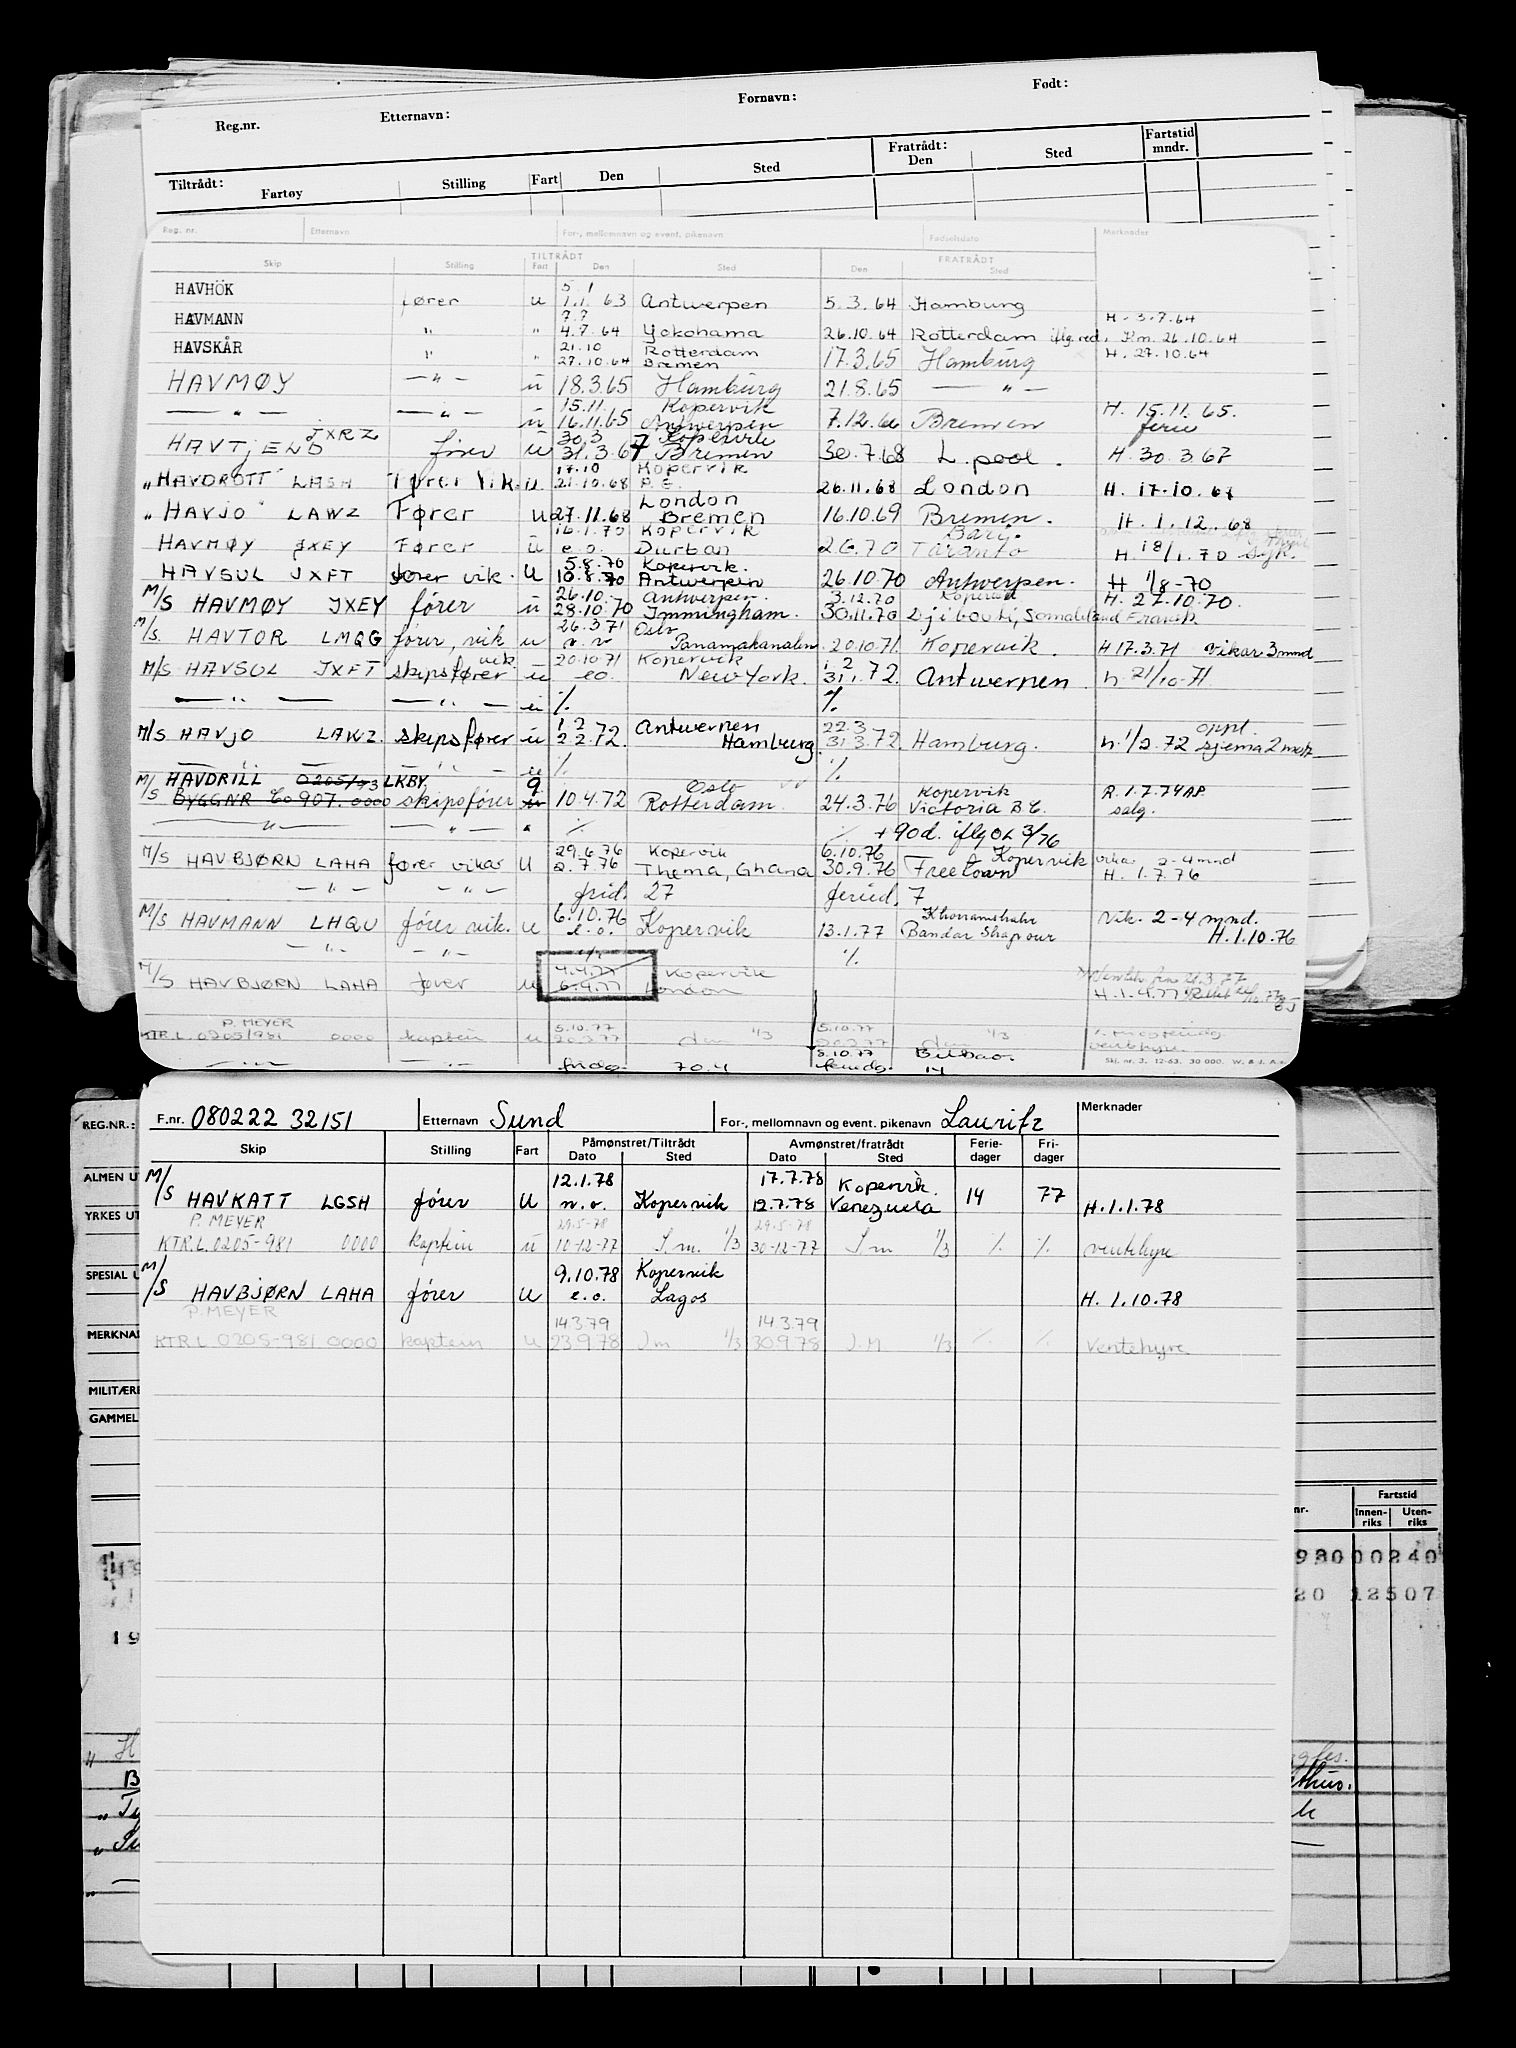 Reg.nr. Etternavn: Fornavn: Født:
Tiltrådt: Fratrådt: Fartstid
Fartøy Stilling Fart Den Sted Den Sted mndr.
Reg. nr. Etternavn For-, mellomnavn og event. pikenavn Fødselsdato Merknader
TILTRÅDT FRATRÅDT
Skip Stilling Fart Den Sted Den Sted
5.1
HAVHÖK fører u 1.1.63 Antwerpen 5.3.64 Hamburg
7.7 H. 3.7.64
HAVMANN " " 4.7.64 Yokohama 26.10.64 Rotterdam iflg.red. Km. 26.10.64
21.10 Rotterdam H. 27.10.64
HAVSKÅR " " 27.10.64 Bremen 17.3.65 Hamburg
HAVMØY — " — u 18.3.65 Hamburg 21.8.65 — " —
15.11 Kopervik H. 15.11.65.
— " — — " — u 16.11.65 Antwerpen 7.12.66 Bremen ferie
JXRZ 30.3 Kopervik
HAVTJELD fører u 31.3.67 Bremen 30.7.68 L.pool. H. 30.3.67
17.10 Kopervik
"HAVDROTT" LASH Fører Vik. u 21.10.68 P.E. 26.11.68 London H. 17.10.68
London
"HAVJO" LAWZ Fører u 27.11.68 Bremen 16.10.69 Bremen. H. 1.12.68
16.1.70 Kopervik Bari
HAVMØY JXEY Fører u e.o. Durban 2.6.70 Taranto H. 18/1.70 syk.
5.8.70 Kopervik.
HAVSUL JXFT fører vik. u 10.8.70 Antwerpen 26.10.70 Antwerpen. H 1/8-70
26.10. Antwerpen. 3.12.70 Kopervik H. 27.10.70.
M/S HAVMØY JXEY fører u 28.10.70 Immingham. 30.11.70 Djibouti, Somaliland Fransk
26.3.71 Oslo
M/S. HAVTOR LMQG fører, vik u n.v Panamakanalen 20.10.71 Kopervik. H 17.3.71 Vikar 3 mnd
vik 20.10.71 Kopervik 1.2
M/S HAVSUL JXFT skipsfører u eo. New York. 31.1.72. Antwerpen h. 21/10-71
— " — — " — u % %
1.2 Antwerpen 22.3 oppl.
M/S HAVJO LAWZ. skipsfører u 2.2.72. Hamburg 31.3.72. Hamburg. h. 1/2.72 sjema 2 mstr
— — " — u % %
M/S HAVDRILL 0205/93 LKBY. 9 Oslo Kopervik R. 1.7.74 AP
BYGGNR Co 907. 0000 skipsfører u 10.4.72 Rotterdam. 24.3.76 Victoria B.C. salg.
— " — — " — " % % + 90d. iflg OL 3/76
29.6.76 Kopervik 6.10.76 Kopervik vikar 2-4 mnd
M/S HAVBJØRN LAHA fører vikar U 2.7.76 Thema, Ghana 30.9.76 Freetown H. 1.7.76
— " — — " — frid. 27 feried. 7
6.10.76 Khorramshahr Vik. 2-4 mnd.
M/S HAVMANN LHQU fører vik. u e.o. Kopervik 13.1.77 Bandar Shapour H. 1.10.76
— " — — " — % %
4.4.77 Kopervik
M/S HAVBJØRN LAHA fører u 6.4.77 London H. 1.4.77
P. MEYER 5.10.77 5.10.77
KTR.L. 0205/981 0000 kaptein u 20.3.77 1/3 1/3 ventehyre
5.10.77 Bilbao.
— " — — " — fridg. 70.4 feriedg. 14
Skj. nr. 3. 12-63. 30 000. W. & J. A.s
F.nr. 080222 32151 Etternavn Sund For-, mellomnavn og event. pikenavn Lauritz Merknader
Skip Stilling Fart Påmønstret/Tiltrådt Avmønstret/fratrådt Ferie- Fri-
Dato Sted Dato Sted dager dager
12.1.78 17.7.78 Kopervik.
M/S HAVKATT LGSH fører U n.o. Kopervik 12.7.78 Venezuela 14 77 H. 1.1.78
P. MEYER 29.5-78 29.5-78
KTR.L. 0205-981 0000 kaptein u 10-12-77 J.m. 1/3 30-12-77 J m 1/3 % % ventehyre
9.10.78 Kopervik
M/S HAVBJØRN LAHA fører U e.o. Lagos H. 1.10.78
P. MEYER 14.3.79 14.3.79
KTR.L. 0205-981 0000 kaptein U 23.9.78 J m 1/3 30.9.78 J.M 1/3 % % Ventehyre
REG.NR.:
ALMEN UT
YRKES UT
SPESIAL U
MERKNAD
MILITÆRE
GAMMEL
nr. Fartstid
Innen- Uten-
riks riks
93000240
20 12507
19